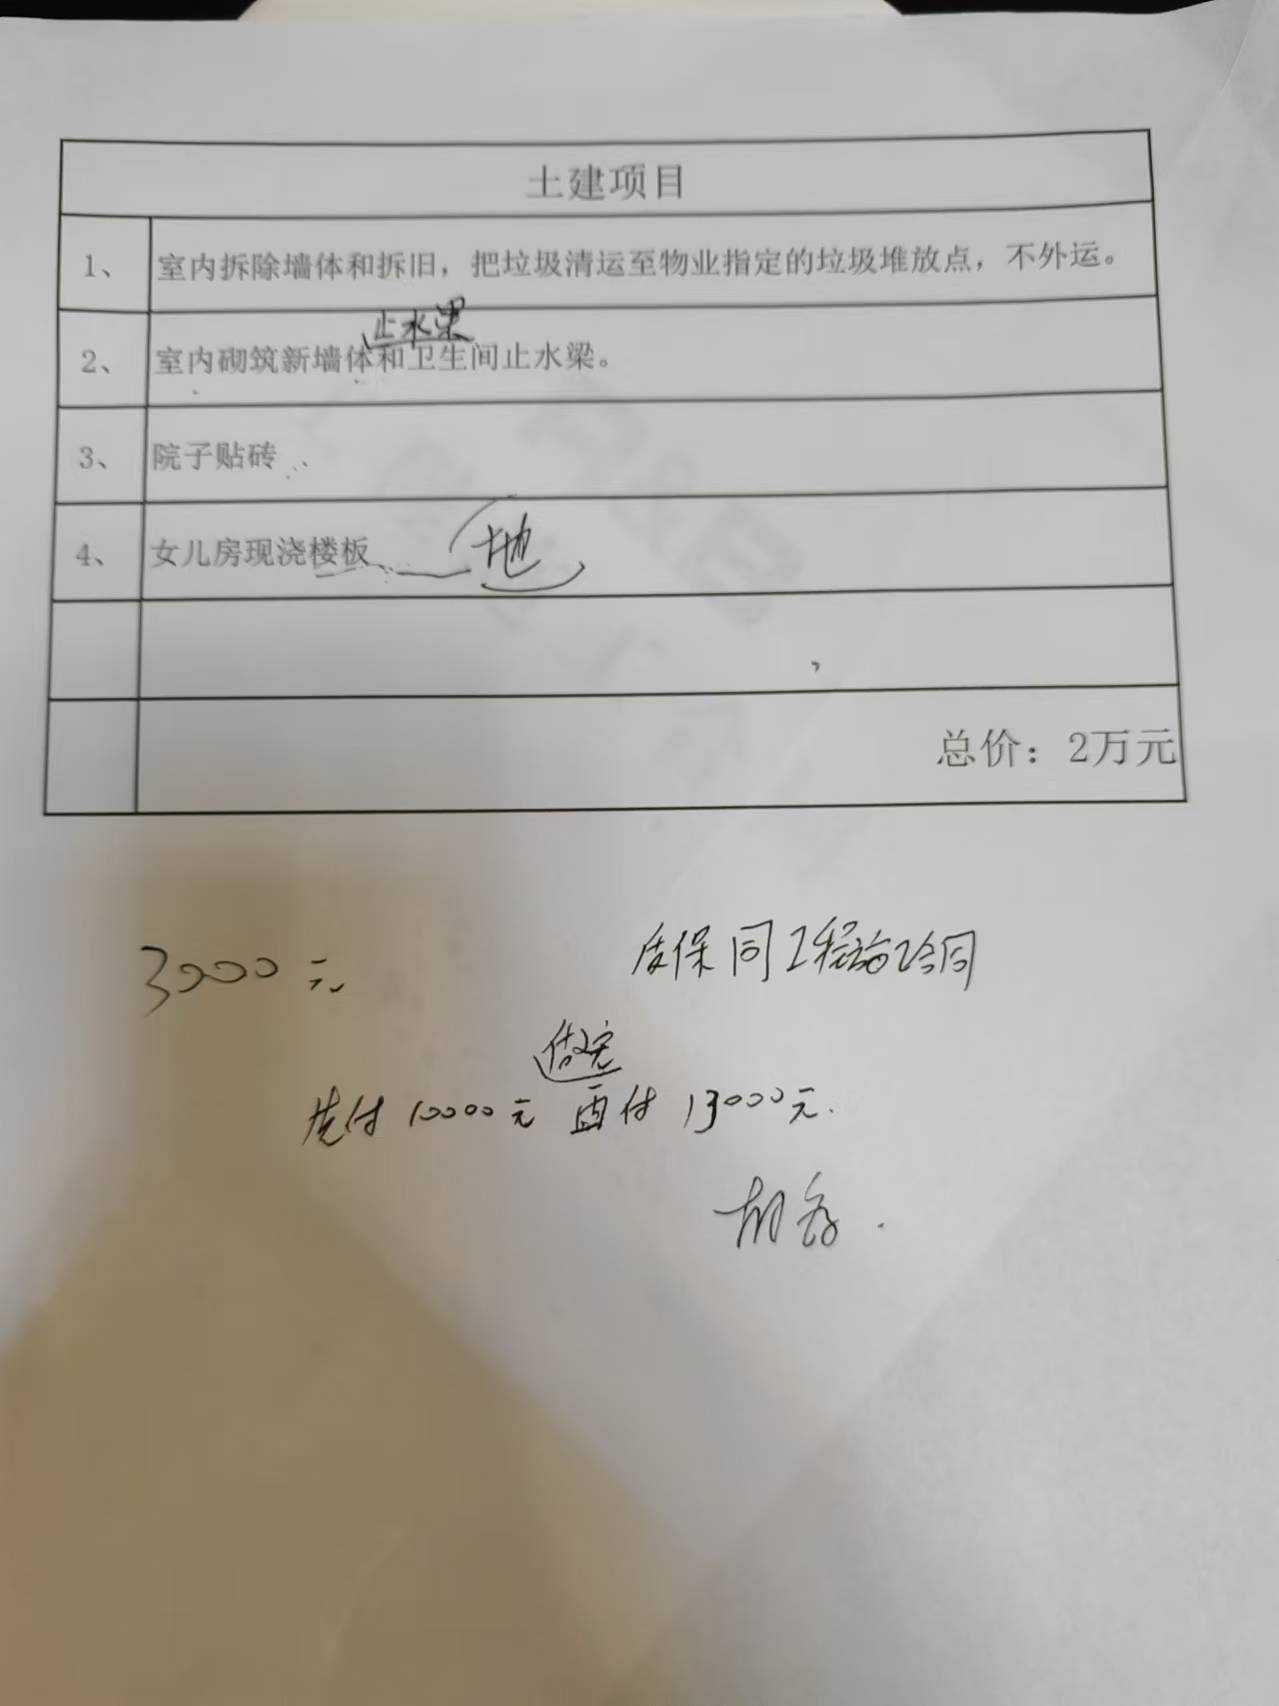 土建项目
1、 室内拆除墙体和拆旧，把垃圾清运至物业指定的垃圾堆放点，不外运。
止水梁
2、 室内砌筑新墙体和卫生间止水梁。
3、 院子贴砖
4、 女儿房现浇楼板 地
总价：2万元
3000元
质保同工程施工合同
做完
先付10000元 再付13000元.